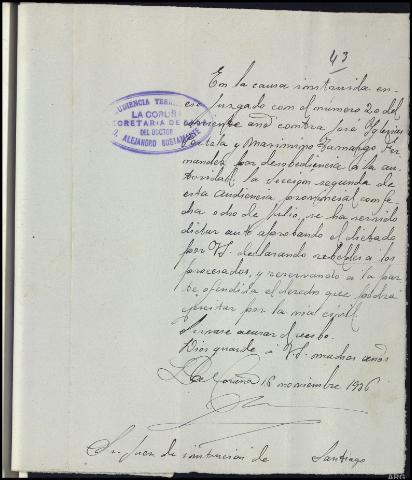 43
En la causa instruida en
ese Juzgado con el número 20 del
corriente año contra José Iglesias
Portela y Maximino Tamargo Fer-
nandez por desobediencia a la au-
toridad, la Sección segunda de
esta Audiencia provincial con fe-
cha ocho de Julio, se ha servido
dictar auto aprobando el dictado
por VS. declarando rebeldes a los
procesados, y reservando a la par-
te ofendida el derecho que podrá
ejercitar por la via civil.
Sirvase acusar el recibo.
Dios guarde a VS. muchos años
La Coruña 16 noviembre 1936
Sr. Juez de instrucion de Santiago
AUDIENCIA TERRITORIAL
LA CORUÑA
SECRETARIA DE
DEL DOCTOR
D. ALEJANDRO BUSTAMANTE
ARG